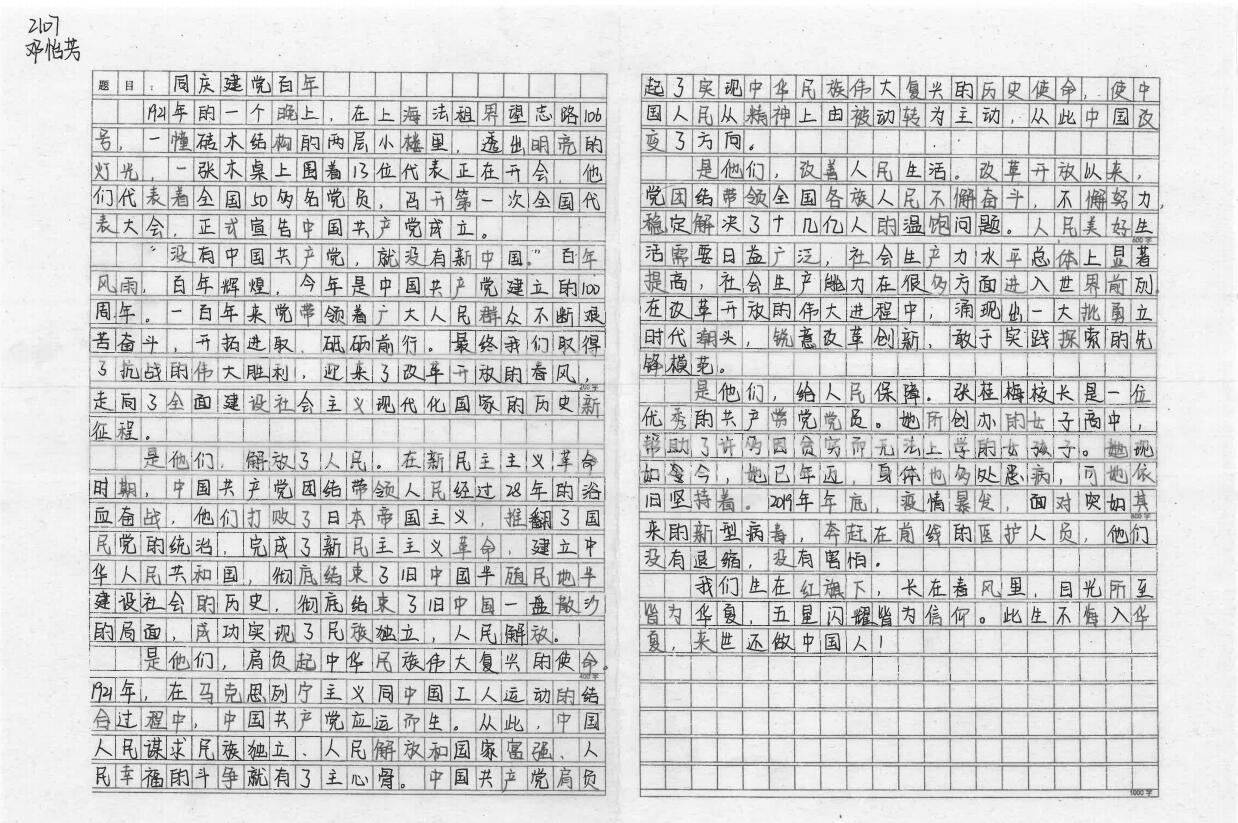 2107
邓怡芳
题目：同庆建党百年
1921年的一个晚上，在上海法租界望志路106
号，一幢砖木结构的两层小楼里，透出明亮的
灯光，一张木桌上围着13位代表正在开会，他
们代表着全国50多名党员，召开第一次全国代
表大会，正式宣告中国共产党成立。
“没有中国共产党，就没有新中国。”百年
风雨，百年辉煌，今年是中国共产党建立的100
周年。一百年来党带领着广大人民群众不断艰
苦奋斗，开拓进取，砥砺前行。最终我们取得
了抗战的伟大胜利，迎来了改革开放的春风，
200字
走向了全面建设社会主义现代化国家的历史新
征程。
是他们，解放了人民。在新民主主义革命
时期，中国共产党团结带领人民经过28年的浴
血奋战，他们打败了日本帝国主义，推翻了国
民党的统治，完成了新民主主义革命，建立中
华人民共和国，彻底结束了旧中国半殖民地半
建设社会的历史，彻底结束了旧中国一盘散沙
的局面，成功实现了民族独立，人民解放。
是他们，肩负起中华民族伟大复兴的使命。
400字
1921年，在马克思列宁主义同中国工人运动的结
合过程中，中国共产党应运而生。从此，中国
人民谋求民族独立、人民解放和国家富强、人
民幸福的斗争就有了主心骨。中国共产党肩负
起了实现中华民族伟大复兴的历史使命，使中
国人民从精神上由被动转为主动，从此中国改
变了方向。
是他们，改善人民生活。改革开放以来，
党团结带领全国各族人民不懈奋斗，不懈努力，
稳定解决了十几亿人的温饱问题。人民美好生
600字
活需要日益广泛，社会生产力水平总体上显著
提高，社会生产能力在很多方面进入世界前列。
在改革开放的伟大进程中，涌现出一大批勇立
时代潮头，锐意改革创新，敢于实践探索的先
锋模范。
是他们，给人民保障。张桂梅校长是一位
优秀的共产党党员。她所创办的女子高中，
帮助了许多因贫穷而无法上学的女孩子。她现
如今，她已年迈，身体也多处患病，可她依
旧坚持着。2019年年底，疫情暴发，面对突如其
800字
来的新型病毒，奔赶在前线的医护人员，他们
没有退缩，没有害怕。
我们生在红旗下，长在春风里，目光所至
皆为华夏，五星闪耀皆为信仰。此生不悔入华
夏，来世还做中国人！
1000字